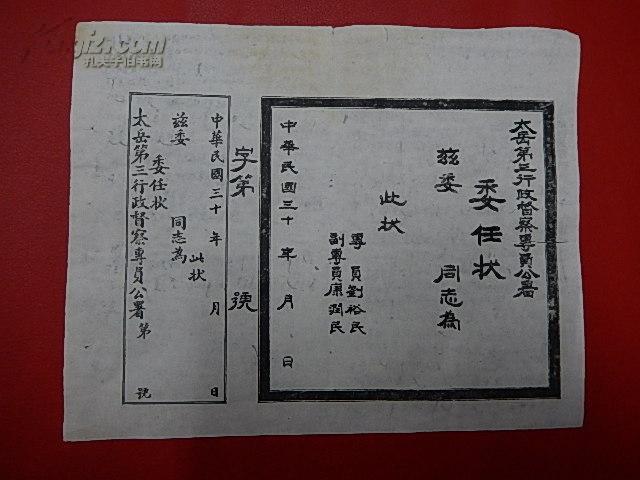 太岳第三行政督察專員公署
委任状
兹委 同志為
此状
專員劉裕民
副專員康潤民
中華民國三十 年 月 日
字第 號
太岳第三行政督察專員公署 第 號
委任状
兹委 同志為
此状
中華民國三十 年 月 日
孔夫子旧书网